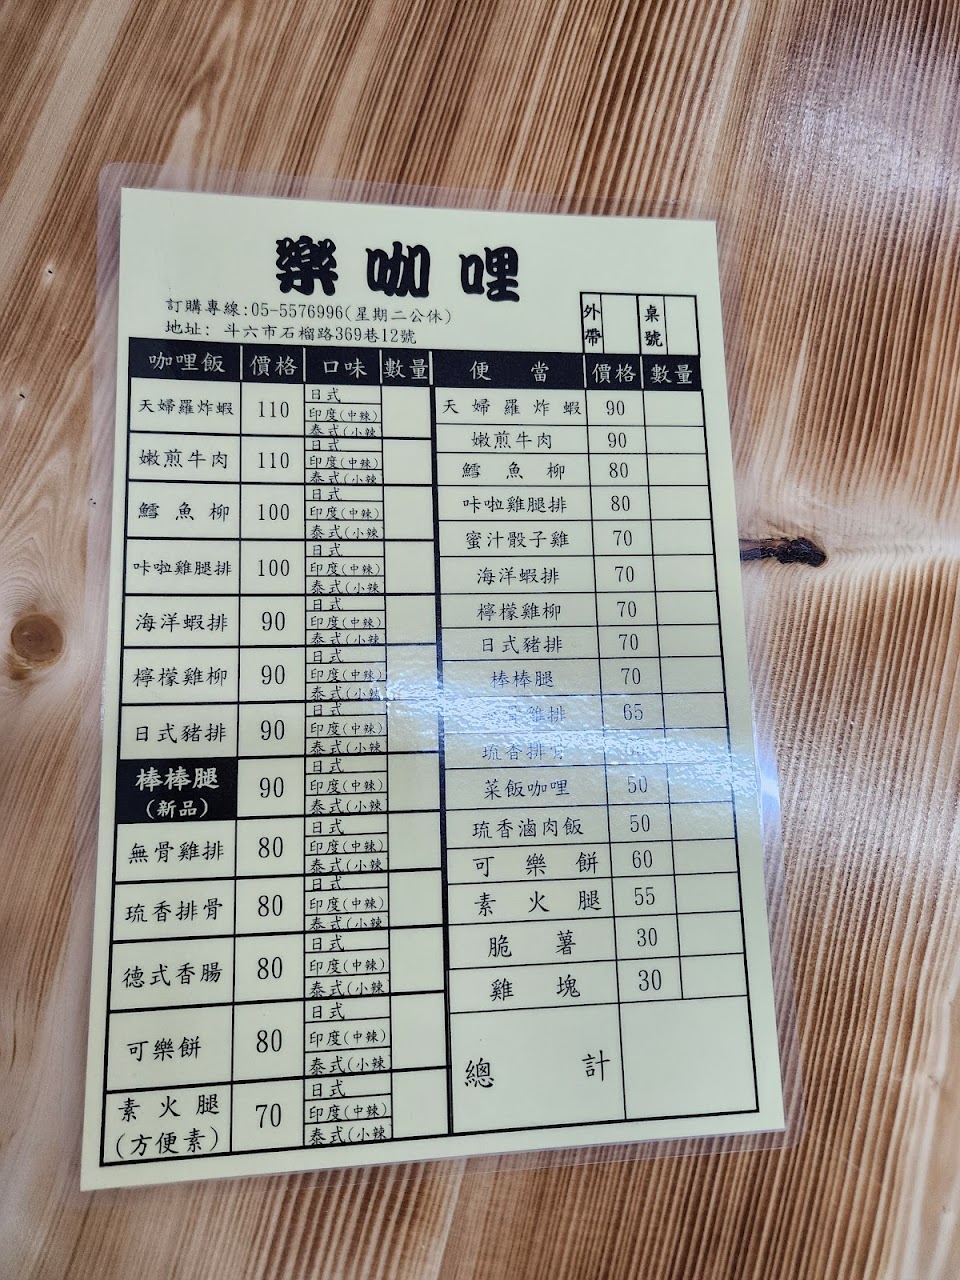 樂咖哩
訂購專線:05-5576996(星期二公休)
地址: 斗六市石榴路369巷12號
外帶 桌號
咖哩飯 價格 口味 數量
天婦羅炸蝦 110 日式 印度(中辣) 泰式(小辣
嫩煎牛肉 110 日式 印度(中辣) 泰式(小辣
鱈魚柳 100 日式 印度(中辣) 泰式(小辣
咔啦雞腿排 100 日式 印度(中辣) 泰式(小辣
海洋蝦排 90 日式 印度(中辣) 泰式(小辣
檸檬雞柳 90 日式 印度(中辣) 泰式(小辣
日式豬排 90 日式 印度(中辣) 泰式(小辣
棒棒腿 (新品) 90 日式 印度(中辣) 泰式(小辣
無骨雞排 80 日式 印度(中辣) 泰式(小辣
琉香排骨 80 日式 印度(中辣) 泰式(小辣
德式香腸 80 日式 印度(中辣) 泰式(小辣
可樂餅 80 日式 印度(中辣) 泰式(小辣
素火腿 (方便素) 70 日式 印度(中辣) 泰式(小辣
便當 價格 數量
天婦羅炸蝦 90
嫩煎牛肉 90
鱈魚柳 80
咔啦雞腿排 80
蜜汁骰子雞 70
海洋蝦排 70
檸檬雞柳 70
日式豬排 70
棒棒腿 70
雞排 65
琉香排骨
菜飯咖哩 50
琉香滷肉飯 50
可樂餅 60
素火腿 55
脆薯 30
雞塊 30
總計